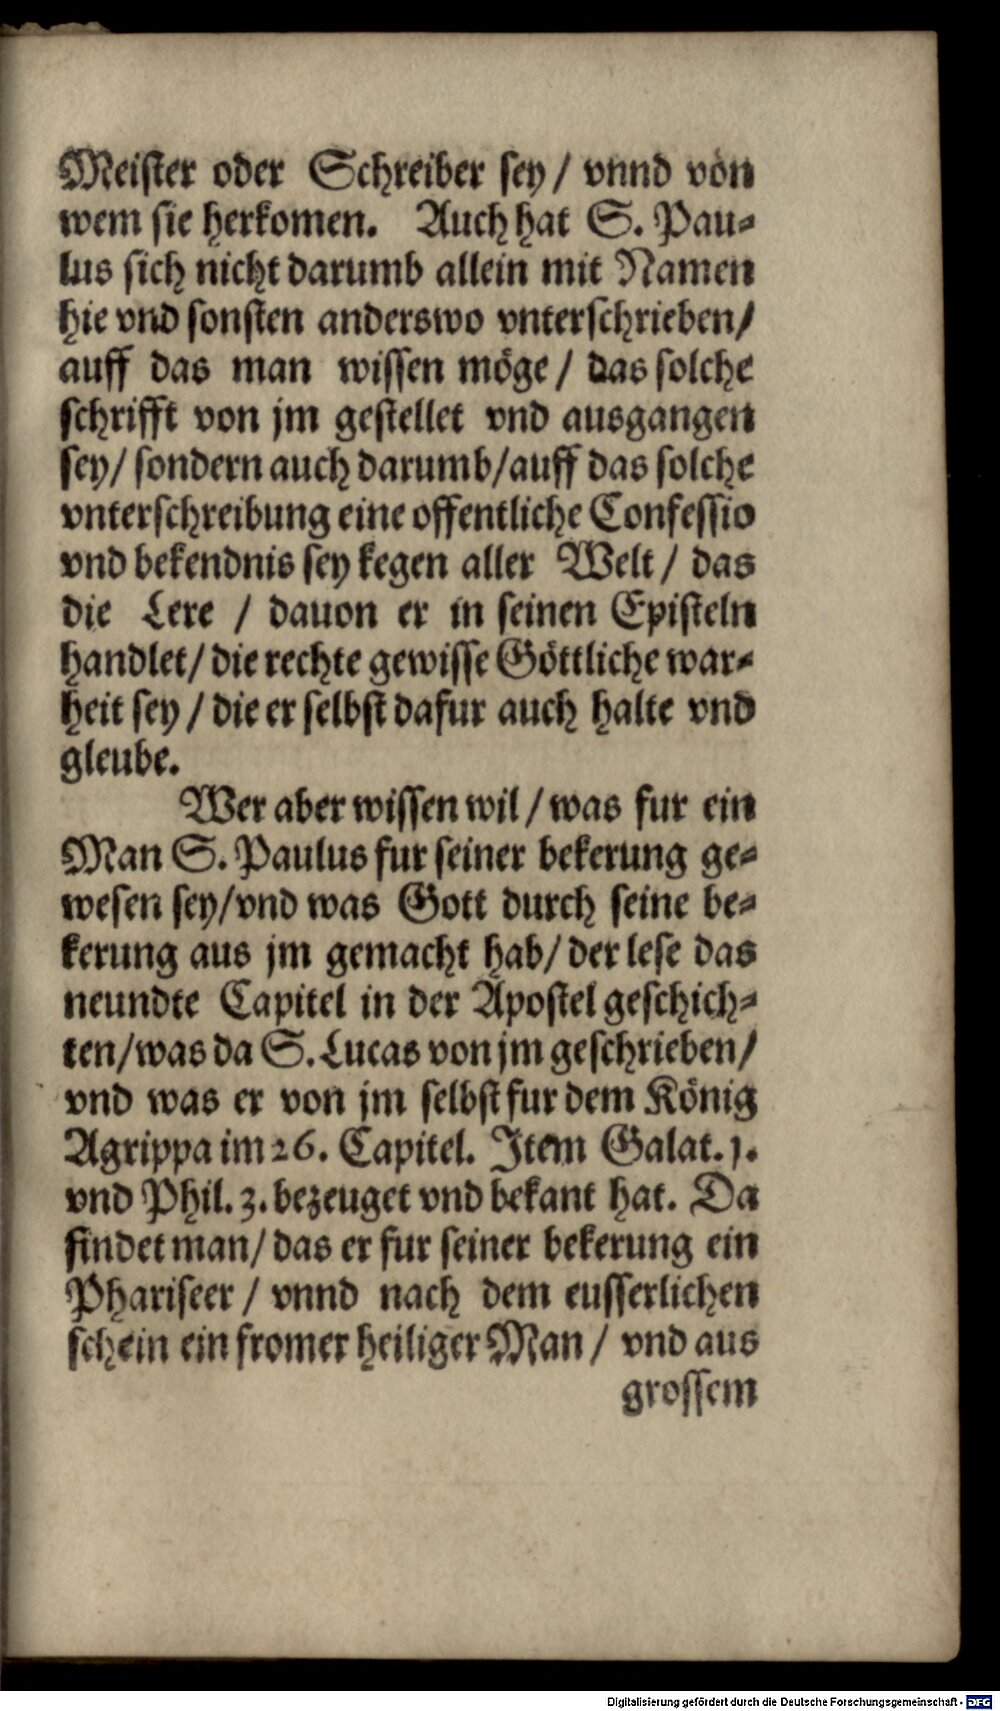 Meister oder Schreiber sey / vnnd von
wem sie herkomen. Auch hat S. Pau-
lus sich nicht darumb allein mit Namen
hie vnd sonsten anderswo vnterschrieben/
auff das man wissen möge / das solche
schrifft von jm gestellet vnd ausgangen
sey/ sondern auch darumb/auff das solche
vnterschreibung eine offentliche Confessio
vnd bekendnis sey kegen aller Welt / das
die Lere / dauon er in seinen Episteln
handlet/ die rechte gewisse Göttliche war-
heit sey / die er selbst dafur auch halte vnd
gleube.
Wer aber wissen wil / was fur ein
Man S. Paulus fur seiner bekerung ge-
wesen sey/vnd was Gott durch seine be-
kerung aus jm gemacht hab/ der lese das
neundte Capitel in der Apostel geschich-
ten/was da S. Lucas von jm geschrieben/
vnd was er von jm selbst fur dem König
Agrippa im 26. Capitel. Item Galat. 1.
vnd Phil. 3. bezeuget vnd bekant hat. Da
findet man/ das er fur seiner bekerung ein
Phariseer / vnnd nach dem eusserlichen
schein ein fromer heiliger Man / vnd aus
grossem
Digitalisierung gefördert durch die Deutsche Forschungsgemeinschaft - DFG